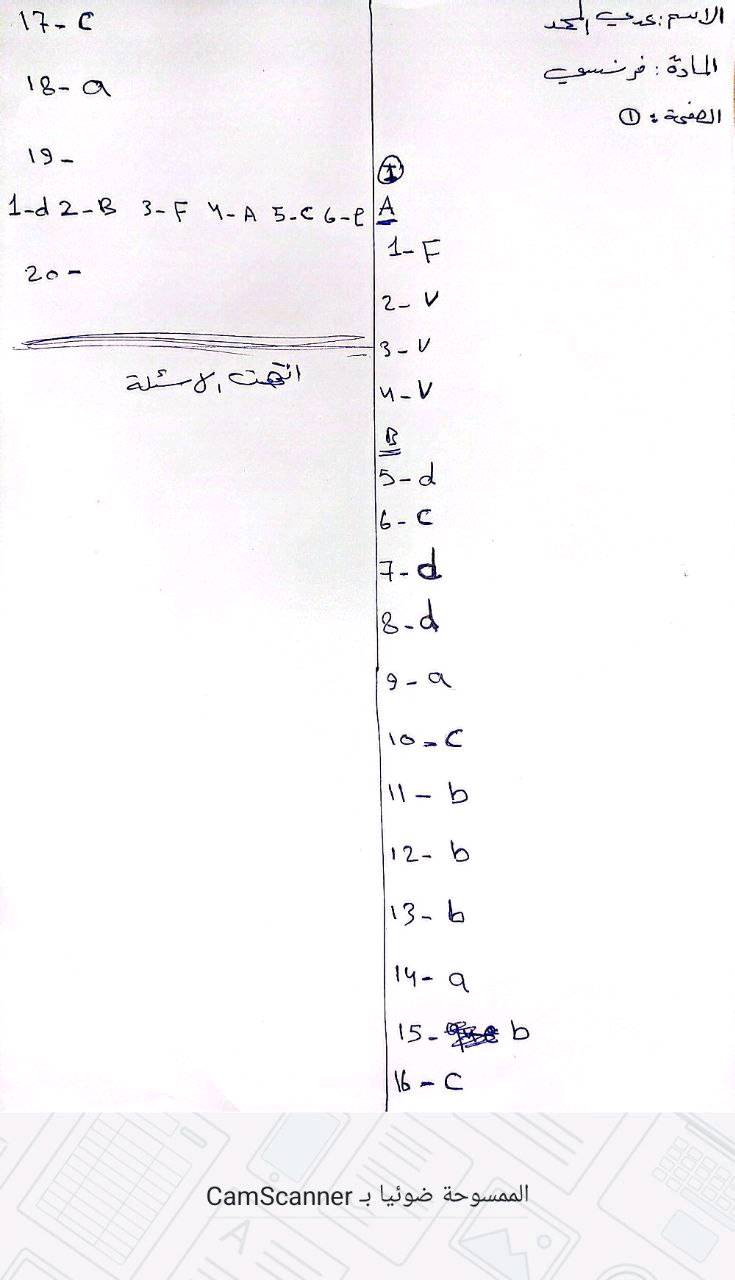 الاسم: عدي المحمد
المادة: فرنسي
الصفحة: ①
I
A
1- F
2- V
3- V
4- V
B
5- d
6- c
7- d
8- d
9- a
10- c
11- b
12- b
13- b
14- a
15- b
16- c
17- c
18- a
19-
1-d 2-B 3-F 4-A 5-C 6-e
20-
انتهت الاسئلة
الممسوحة ضوئيا بـ CamScanner